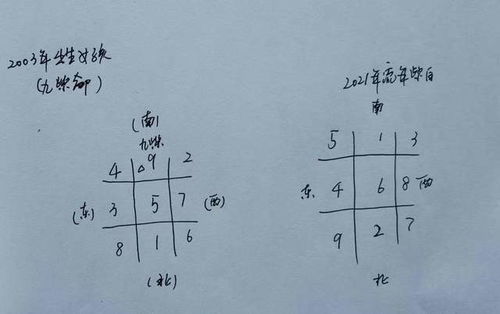 2003年出生女孩
(九紫命)
(南)
九紫
4 9 2
(东) 3 5 7 (西)
8 1 6
(北)
2021年流年紫白
南
5 1 3
东 4 6 8 西
9 2 7
北